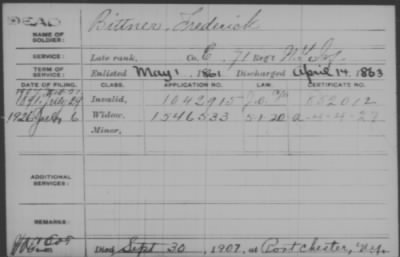 DEAD
Bittner, Frederick
NAME OF SOLDIER:
SERVICE: Late rank, Co. E, 71 Reg't N.Y. Inf.
TERM OF SERVICE: Enlisted May 1, 1861. Discharged April 14, 1863
DATE OF FILING. CLASS. APPLICATION NO. LAW. CERTIFICATE NO.
1891, July 29 Invalid, 1042915 552012
1926 6 Widow, 1546533 5-1-20 a-4-4-27
Minor,
ADDITIONAL SERVICES:
REMARKS:
Died Sept 30, 1907, at Portchester, N.Y.